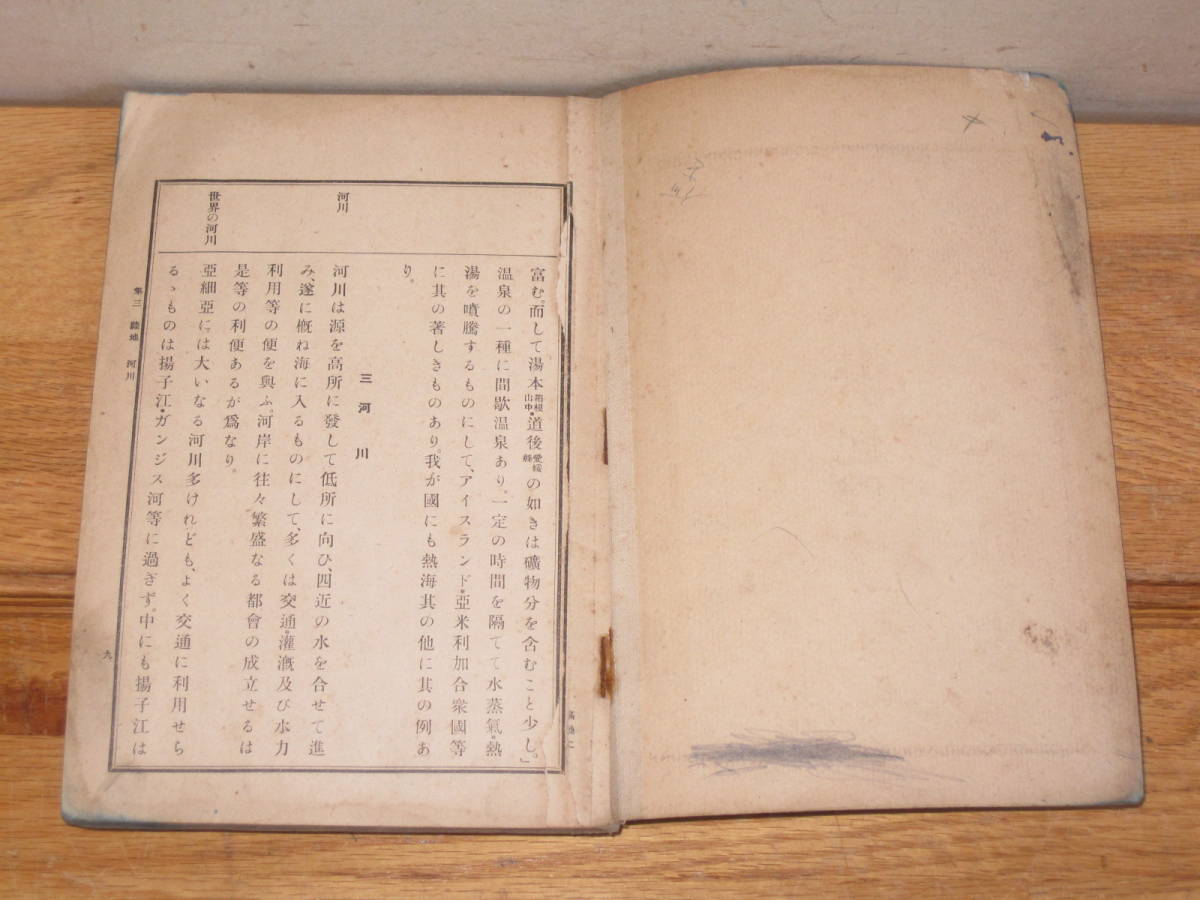 富む。而して湯本箱根山中・道後愛媛縣の如きは礦物分を含むこと少し。」
溫泉の一種に間歇溫泉あり。一定の時間を隔てて水蒸氣・熱
湯を噴騰するものにして、アイスランド・亞米利加合衆國等
に其の著しきものあり。我が國にも熱海其の他に其の例あ
り。
三河川
河川
河川は源を高所に發して低所に向ひ、四近の水を合せて進
み、遂に概ね海に入るものにして、多くは交通・灌漑及び水力
利用等の便を與ふ。河岸に往々繁盛なる都會の成立せるは
是等の利便あるが爲なり。
世界の河川
亞細亞には大いなる河川多けれども、よく交通に利用せら
るゝものは揚子江・ガンジス河等に過ぎず。中にも揚子江は
第三 陸地 河川
九